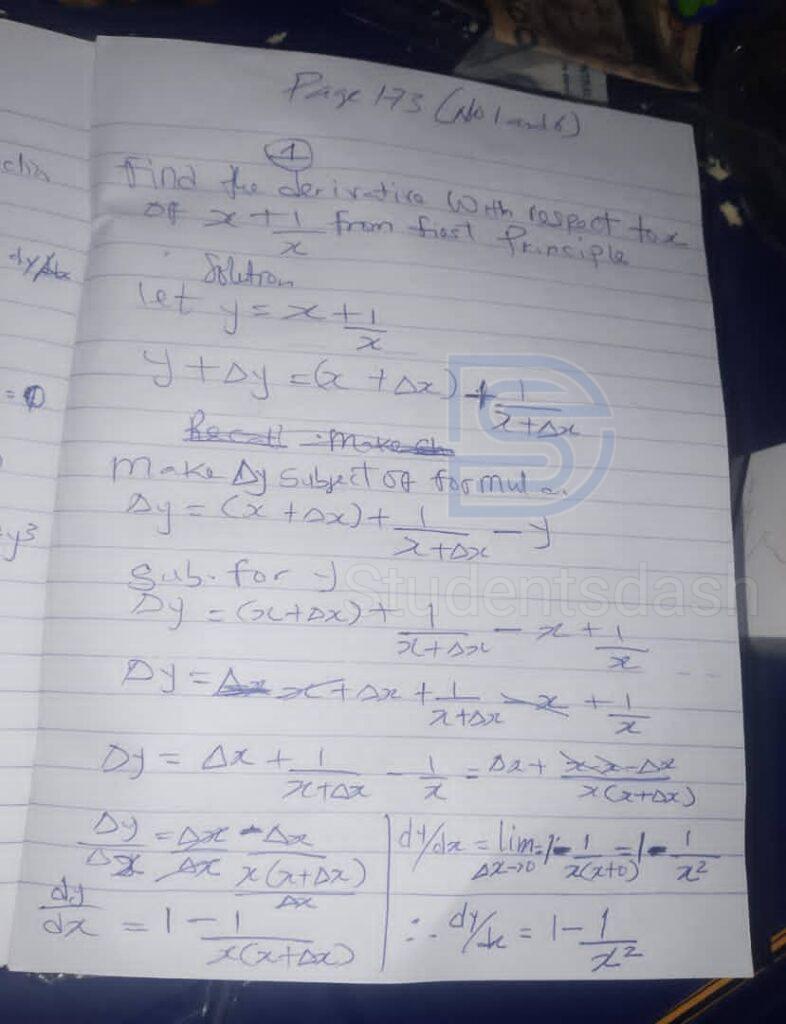 Page 173 (No 1 and 6)
1
Find the derivative with respect to x
of x + 1/x from first Principle
Solution
let y = x + 1/x
y + Δy = (x + Δx) + 1/(x+Δx)
Make Δy subject of formula.
Δy = (x + Δx) + 1/(x+Δx) - y
Sub. for y
Studentsdash
Δy = (x+Δx) + 1/(x+Δx) - x + 1/x
Δy = x + Δx + 1/(x+Δx) - x + 1/x
Δy = Δx + 1/(x+Δx) - 1/x = Δx + (x-x-Δx)/(x(x+Δx))
Δy/Δx = Δx/Δx - (Δx/(x(x+Δx)))/Δx
dy/dx = 1 - 1/(x(x+Δx))
dy/dx = lim Δx→0 = 1 - 1/(x(x+0)) = 1 - 1/x²
∴ dy/dx = 1 - 1/x²
dy/dx
= 0
y³